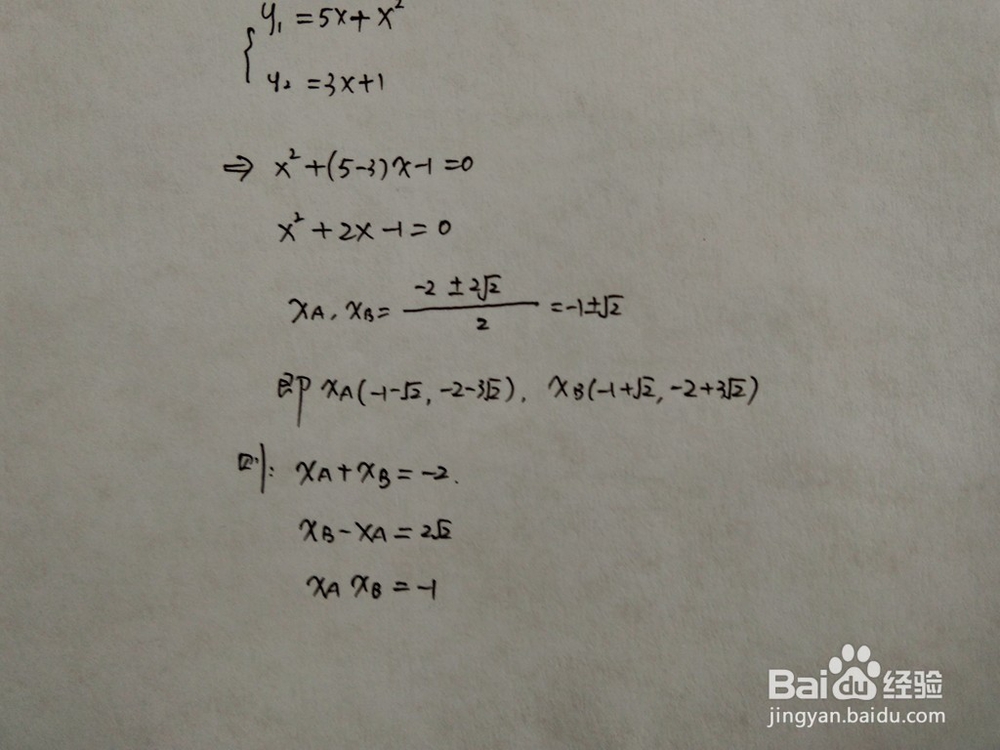 y₁ = 5x + x²
y₂ = 3x + 1
⇒ x² + (5-3)x - 1 = 0
x² + 2x - 1 = 0
x_A, x_B = (-2 ± 2√2)/2 = -1 ± √2
即 x_A(-1-√2, -2-3√2), x_B(-1+√2, -2+3√2)
则: x_A + x_B = -2.
x_B - x_A = 2√2
x_A x_B = -1
Baidu 经验
jingyan.baidu.com